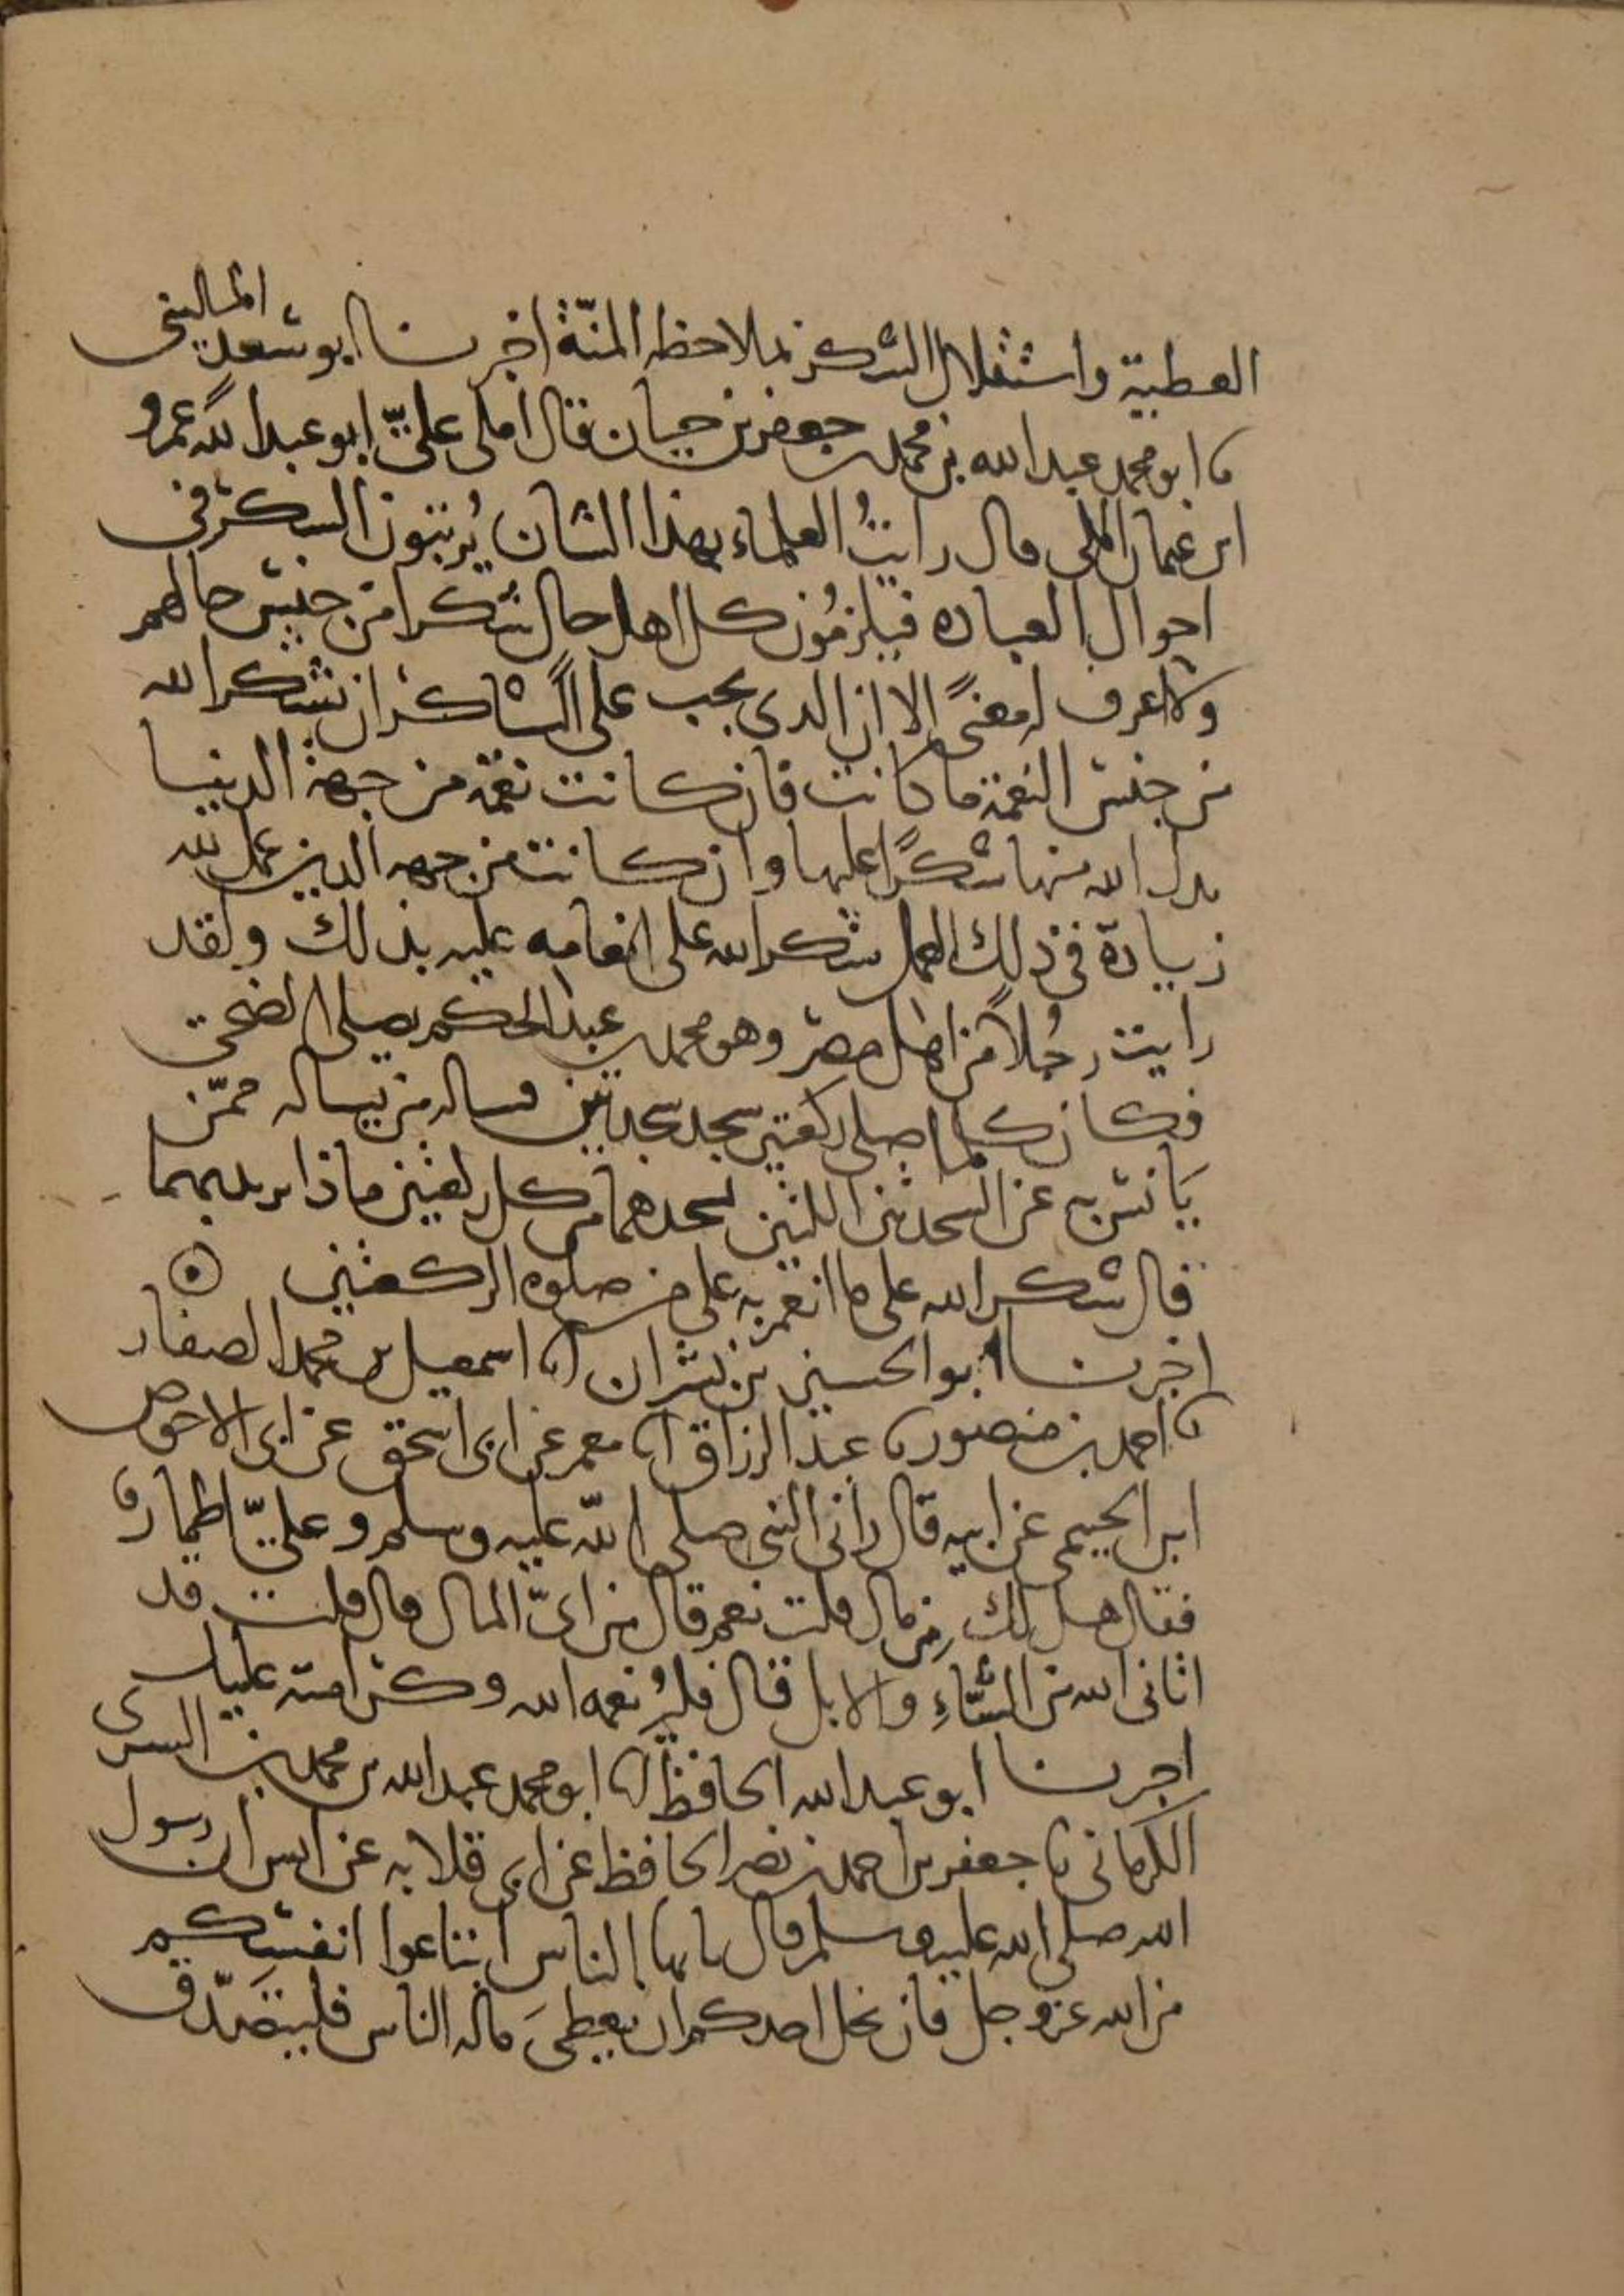 العطية واستقلال الشكر بملاحظه المنّة اخبرنا ابو سعد الماليني
نا ابو محمد عبد الله بن محمد بن جعفر بن حيان قال املى عليّ ابو عبد الله عمرو
ابن عثمان المكي قال رايتُ العلماء بهذا الشان يُرتبون الشكر في
احوال العباده فيلزمُون كل اهل حال شكرا من جنس حالهم
ولا اعرف له معنىً الا ان الذي يجب على الشاكر ان يشكر الله
من جنس النعمة ما كانت فان كانت نعمة من جهة الدنيا
بذل الله منها شكرًا عليها وان كانت من جهه الدين عمل لله
زيادة في ذلك العمل شكرا لله على انعامه عليه بذلك ولقد
رايت رجُلاً من اهل مصر وهو محمد بن عبد الحكم يصلي الضحى
فكان كلما صلى ركعتين سجد سجدتين فساله من يساله ممّن
يَانس به عن السجدتين اللتين يسجدهما من كل ركعتين ماذا يريد بهما
قال شكرا لله على ما انعم به علي من صلوه الركعتين
اخبرنا ابو الحسين بن بشران انا اسمعيل بن محمد الصفار
نا احمد بن منصور نا عبد الرزاق انا معمر عن ابي اسحق عن ابي الاحوص
ابن الجيمي عن ابيه قال راني النبي صلى الله عليه وسلم وعليّ اطمار
فقال هل لك من مال قلت نعم قال من ايّ المال قال قلت قد
اتاني الله من الشاءِ والابل قال فليُر نعمه الله وكرامته عليك
اخبرنا ابو عبد الله الحافظ انا ابو محمد عبد الله بن محمد بن السري
الكرماني نا جعفر بن احمد بن نصر الحافظ عن ابي قلابه عن انس ان رسول
الله صلى الله عليه وسلم قال يا ايها الناس ابتاعوا انفسكم
من الله عز وجل فان بخل احدكم ان يعطيَ ماله الناس فليتصَدّق